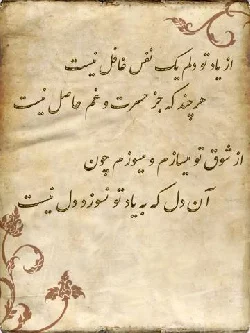 از یاد تو دلم یک نفس غافل نیست
هر چند که جز حسرت و غم حاصل نیست
از شوق تو میسازم و میسوزم چون
آن دل که به یاد تو نسوزد دل نیست